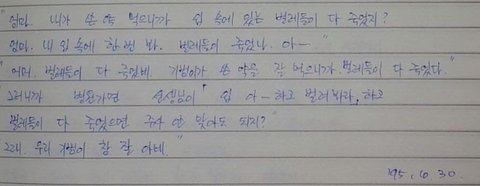 "엄마. 내가 쓴 약 먹으니까 입 속에 있는 벌레들이 다 죽었지?
엄마. 내 입 속에 한번 봐. 벌레들이 죽었나. 아—"
"어머. 벌레들이 다 죽었네. 기범이가 쓴 약을 잘 먹으니까 벌레들이 다 죽었다."
"그러니까 병원가면 선생님이 '입 아-하고 벌려봐라, 하고
벌레들이 다 죽었으면 주사 안 맞아도 되지?"
"그래. 우리 기범이 참 잘 아네."
'95. 6. 30.